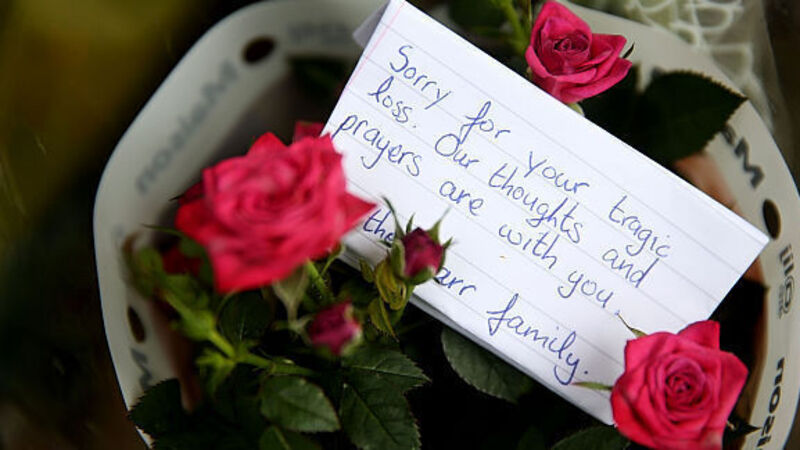 Sorry for your tragic
loss. Our thoughts and
prayers are with you.
family.
Maison
Maison